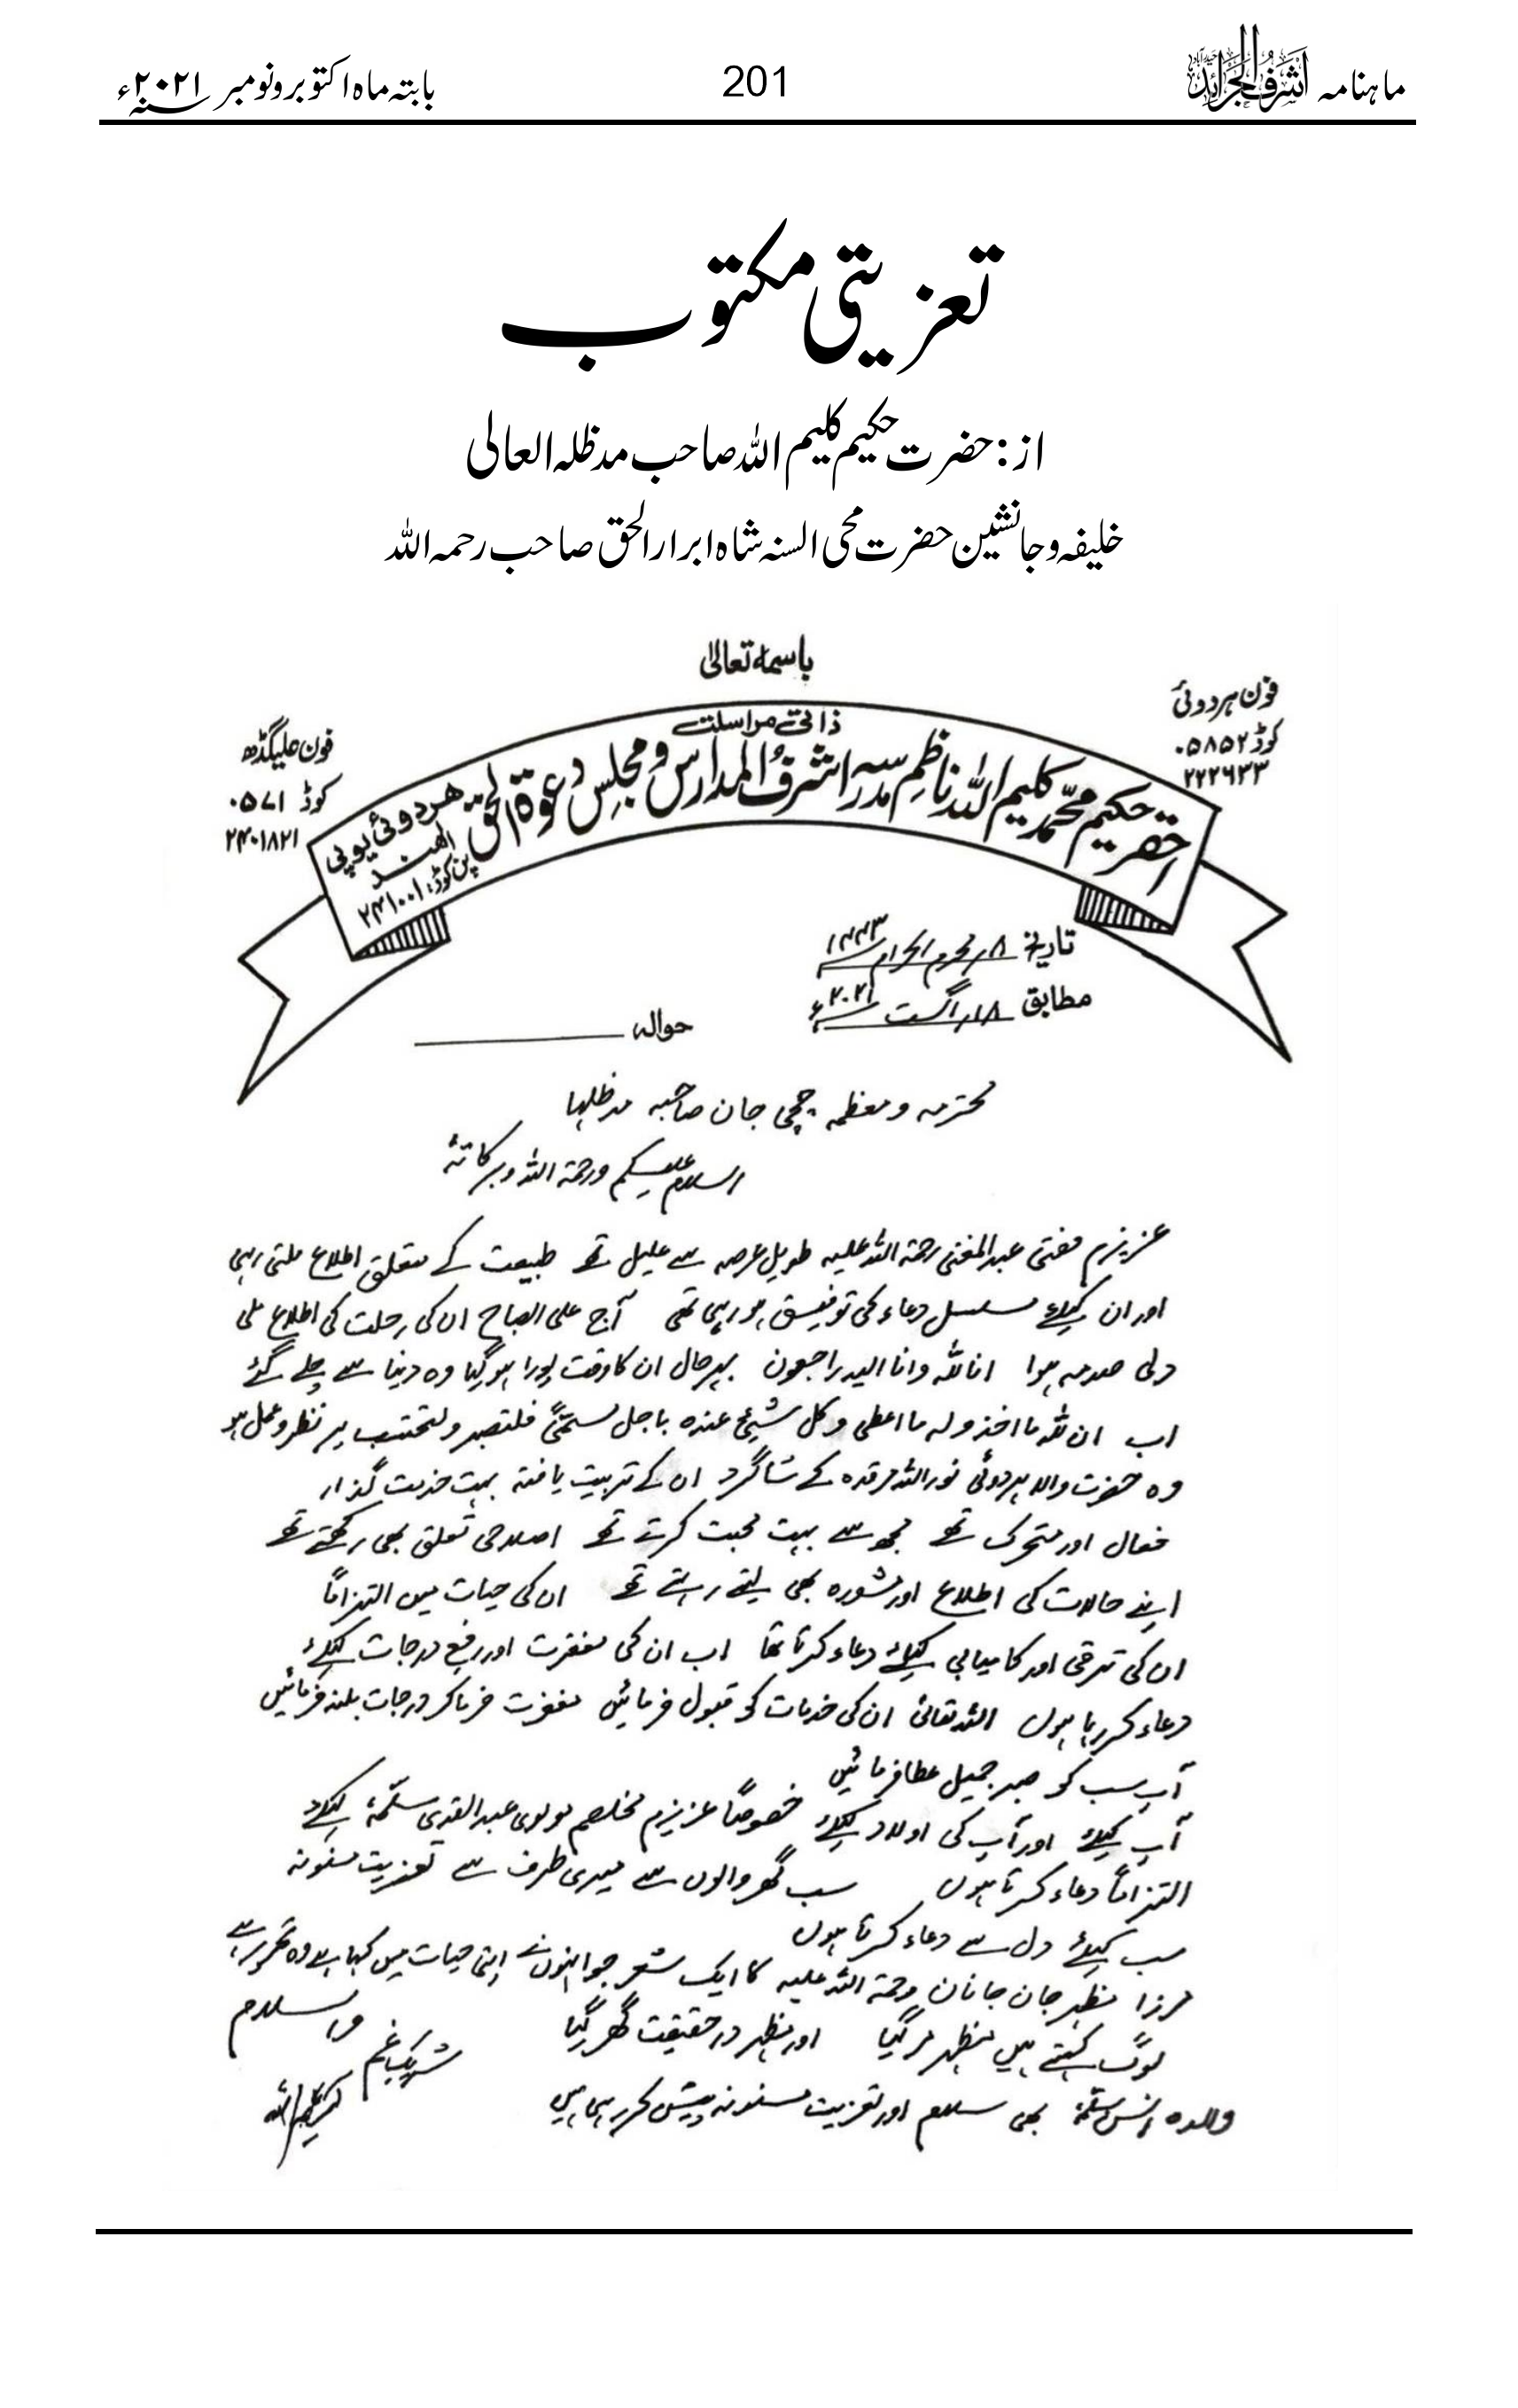 ماہنامہ اشرف الجرائد حیدرآباد
201
بابتہ ماہ اکتوبر و نومبر ۲۰۲۱ء
تعزیتی مکتوب
از: حضرت حکیم کلیم اللہ صاحب مدظلہ العالی
خلیفہ و جانشین حضرت محی السنہ شاہ ابرار الحق صاحب رحمہ اللہ
باسمہ تعالیٰ
فون ہردوئی
کوڈ ۰۵۸۵۲
۲۲۲۶۳۳
ذاتی مراسلت
احقر حکیم محمد کلیم اللہ ناظم مدرسہ اشرف المدارس و مجلس دعوۃ الحق ہردوئی یوپی
الھند
پن کوڈ: ۲۴۱۰۰۱
فون علیگڈھ
کوڈ ۰۵۷۱
۲۴۰۱۸۲۱
تاریخ ۸؍محرم الحرام ۱۴۴۳
مطابق ۱۸؍اگست ۲۰۲۱ء
حوالہ
محترمہ و معظمہ چچی جان صاحبہ مدظلہا
السلام علیکم ورحمۃ اللہ وبرکاتہٗ
عزیزم مفتی عبدالمغنی رحمۃ اللہ علیہ طویل عرصہ سے علیل تھے طبیعت کے متعلق اطلاع ملتی رہی
اور ان کیلئے مسلسل دعاء کی توفیق ہو رہی تھی آج علی الصباح ان کی رحلت کی اطلاع ملی
دلی صدمہ ہوا انا للہ وانا الیہ راجعون بہرحال ان کا وقت پورا ہوگیا وہ دنیا سے چلے گئے
اب ان للہ ما اخذ ولہ ما اعطی وکل شیئ عندہ باجل مسمّیً فلتصبر ولتحتسب پر نظر و عمل ہو
وہ حضرت والا ہردوئی نور اللہ مرقدہ کے شاگرد ان کے تربیت یافتہ بہت خدمت گذار
فعال اور متحرک تھے مجھ سے بہت محبت کرتے تھے اصلاحی تعلق بھی رکھتے تھے
اپنے حالات کی اطلاع اور مشورہ بھی لیتے رہتے تھے ان کی حیات میں التزاماً
ان کی ترقی اور کامیابی کیلئے دعاء کرتا تھا اب ان کی مغفرت اور رفع درجات کیلئے
دعاء کر رہا ہوں اللہ تعالیٰ ان کی خدمات کو قبول فرمائیں مغفرت فرماکر درجات بلند فرمائیں
آپ سب کو صبر جمیل عطا فرمائیں
آپ کیلئے اور آپ کی اولاد کیلئے خصوصاً عزیزم مخلصم مولوی عبدالقوی سلّمہٗ کیلئے
التزاماً دعاء کرتا ہوں سب گھر والوں سے میری طرف سے تعزیت مسنونہ
سب کیلئے دل سے دعاء کرتا ہوں
مرزا مظہر جان جاناں رحمۃ اللہ علیہ کا ایک شعر جو انہوں نے اپنی حیات میں کہا ہے وہ تحریر ہے
لوگ کہتے ہیں مظہر مر گیا اور مظہر درحقیقت گھر گیا
والسلام
شریک غم
کلیم اللہ
والدہ انس سلّمہٗ بھی سلام اور تعزیت مسنونہ پیش کر رہی ہیں